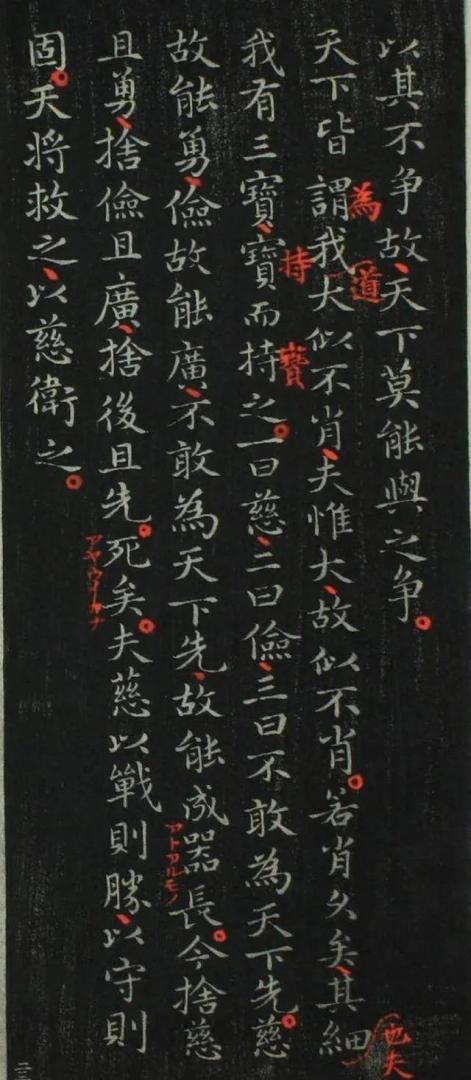 以其不争故、天下莫能與之争。
天下皆謂我大似不肖、夫惟大、故似不肖。若肖久矣、其細
為
道
也夫
我有三寶、寶而持之。一曰慈、二曰儉、三曰不敢為天下先。慈
持
寶
故能勇、儉故能廣、不敢為天下先、故能成器長。今捨慈
アトアルモノ
且勇、捨儉且廣、捨後且先。死矣。夫慈以戰則勝、以守則
固。天将救之、以慈衛之。